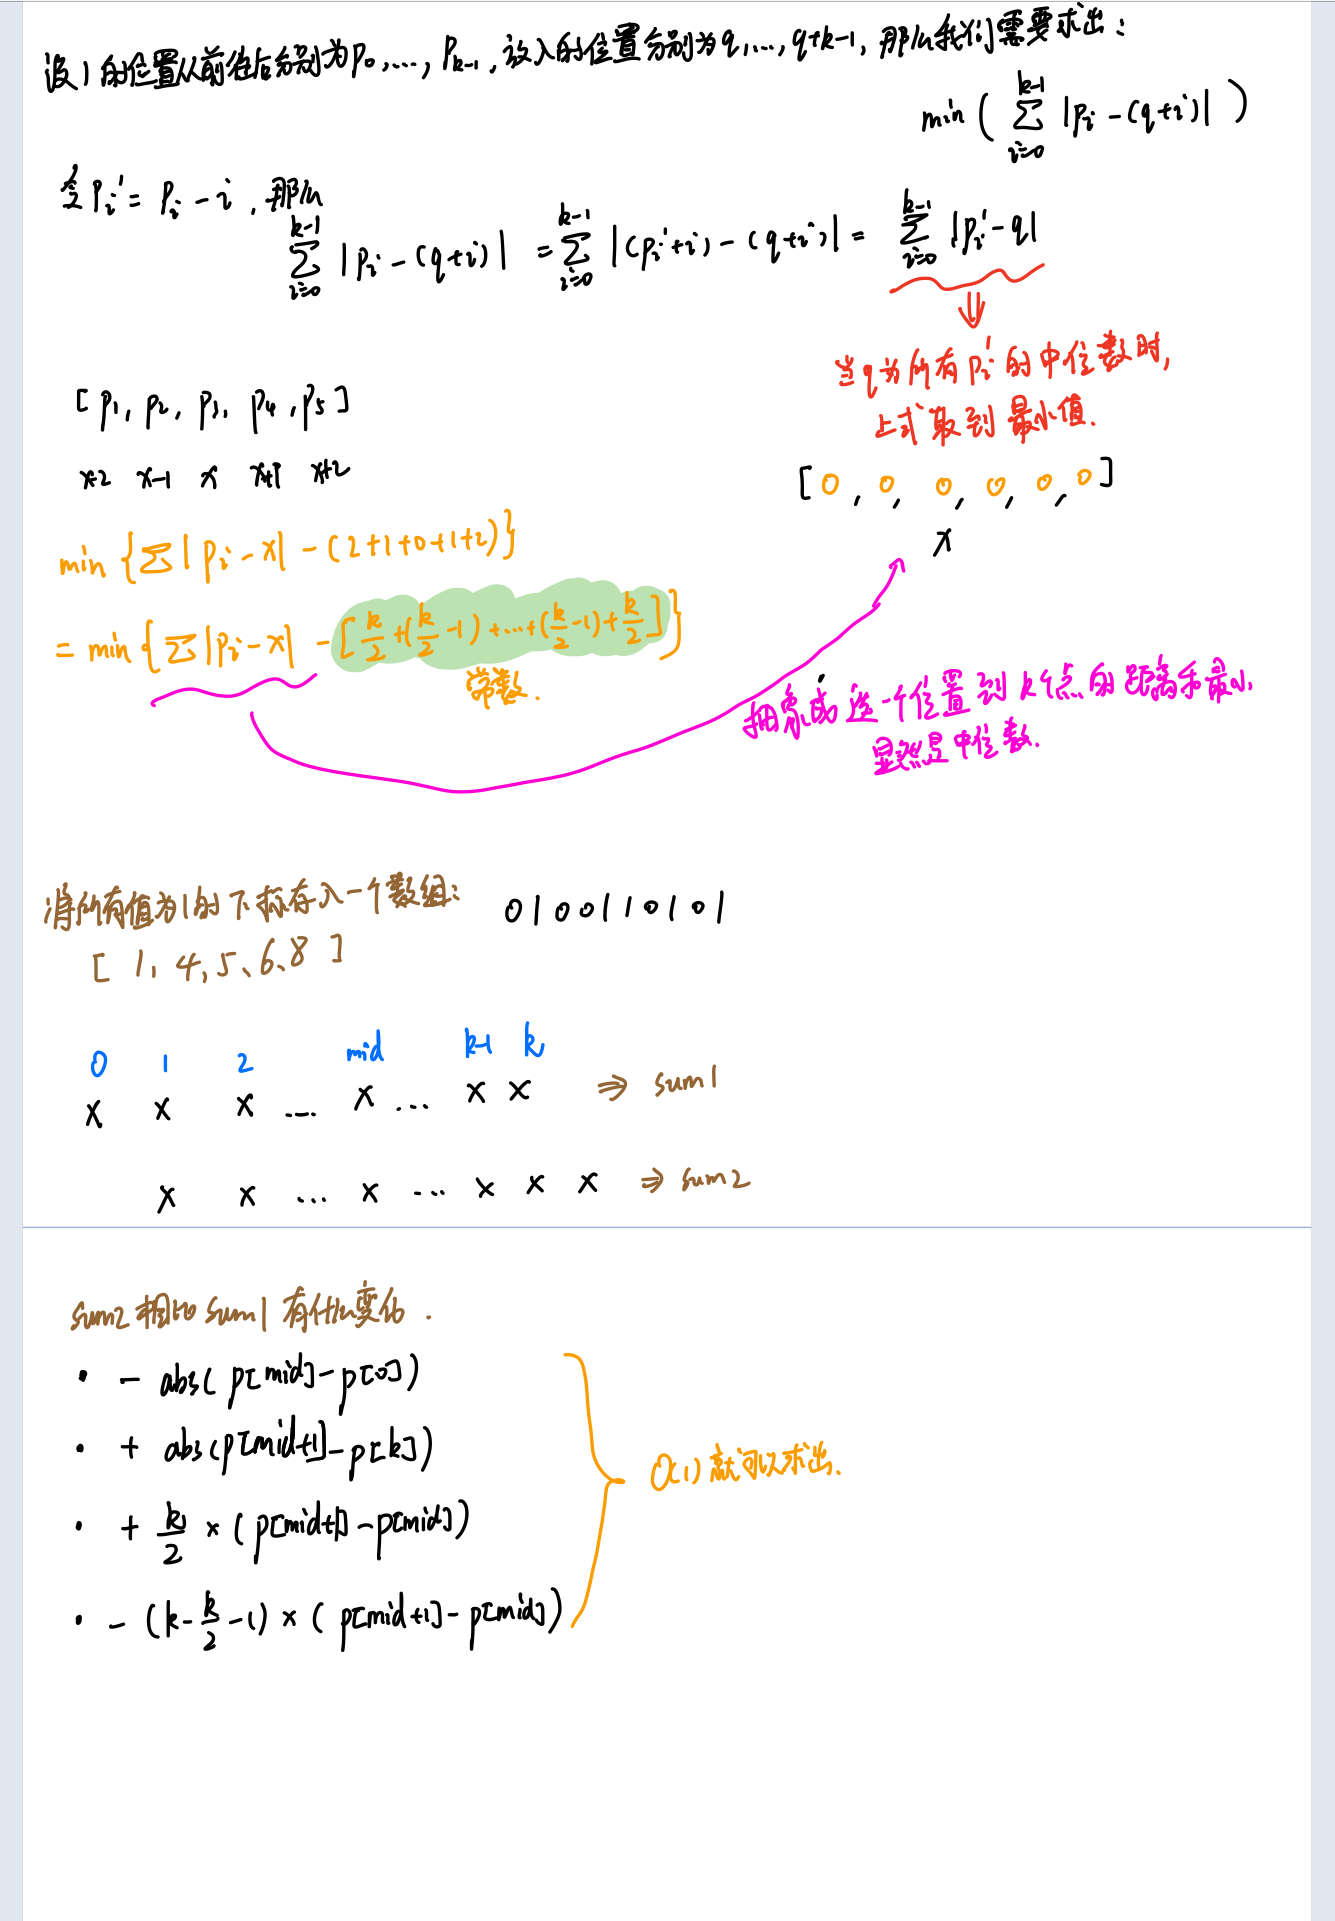 设1的位置从前往后分别为p₀,...,Pₖ₋₁,放入的位置分别为q,...,q+k-1,那么我们需要求出:
min(∑_{i=0}^{k-1}|pᵢ-(q+i)|)
令Pᵢ'=Pᵢ-i,那么
∑_{i=0}^{k-1}|pᵢ-(q+i)|=∑_{i=0}^{k-1}|(pᵢ'+i)-(q+i)|=∑_{i=0}^{k-1}|pᵢ'-q|
⇓
当q为所有pᵢ'的中位数时,
上式取到最小值.
[p₁,p₂,p₃,p₄,p₅]
x-2 x-1 x x+1 x+2
[0,0,0,0,0,0]
x
min{∑|pᵢ-x|-(2+1+0+1+2)}
=min{∑|pᵢ-x|-[k/2+(k/2-1)+...+(k/2-1)+k/2]}
常数.
抽象成选一个位置到k个点的距离和最小,
显然是中位数.
将所有值为1的下标存入一个数组: 0100110101
[1,4,5、6、8]
0 1 2 mid k-1 k
x x x ... x ... x x ⇒ sum1
x x ... x ... x x x ⇒ sum2
sum2相比sum1有什么变化.
· - abs(p[mid]-p[0])
· + abs(p[mid+1]-p[k])
· + k/2 × (p[mid+1]-p[mid])
· - (k-k/2-1)×(p[mid+1]-p[mid])
O(1)就可以求出.